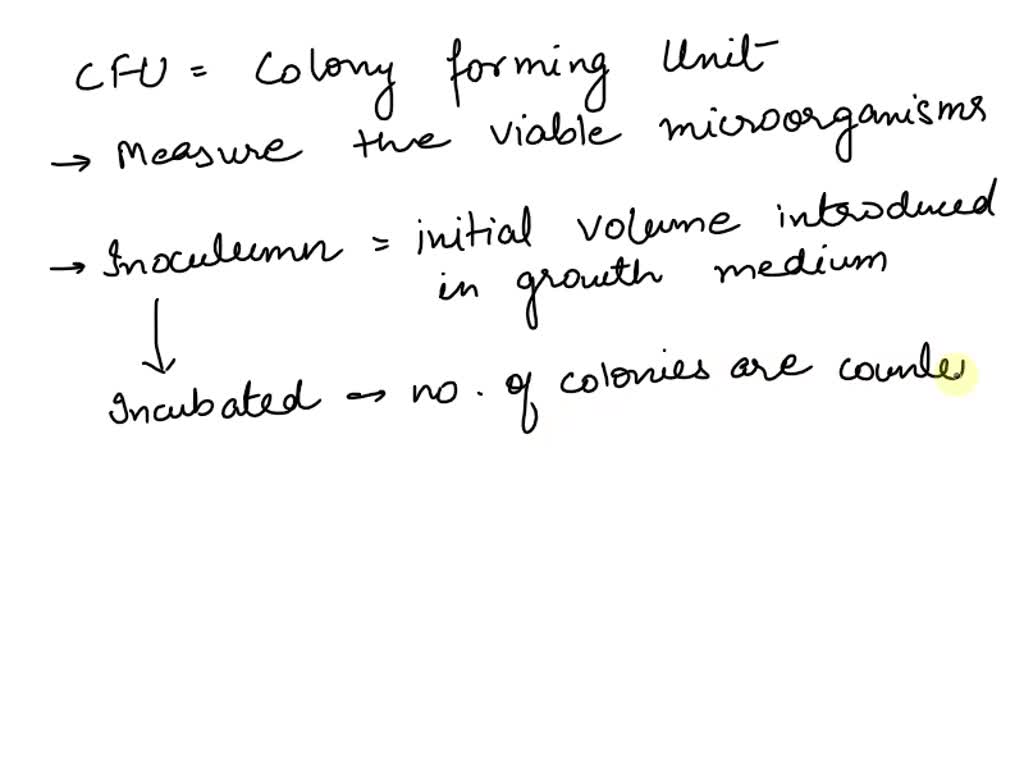 CFU = Colony forming Unit
→ Measure the viable microorganisms
→ Inoculumn = initial volume introduced
in growth medium
↓
Incubated → no. of colonies are counte